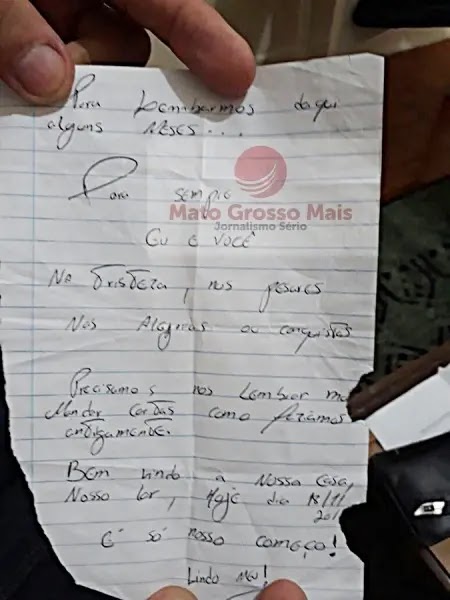 Para Lembarmos daqui
alguns meses...
Para sempre
Mato Grosso Mais
Jornalismo Sério
Eu e VOCÊ
Na tristeza, nos pesares
Nas Alegrias ou conquistas
Precisamos nos Lembar
Mandar Cartas como fazíamos
antigamente.
Bem vindo a Nossa Casa,
Nosso lar, Hoje dia 18/11
201
É só nosso começo!
Lindo Meu!